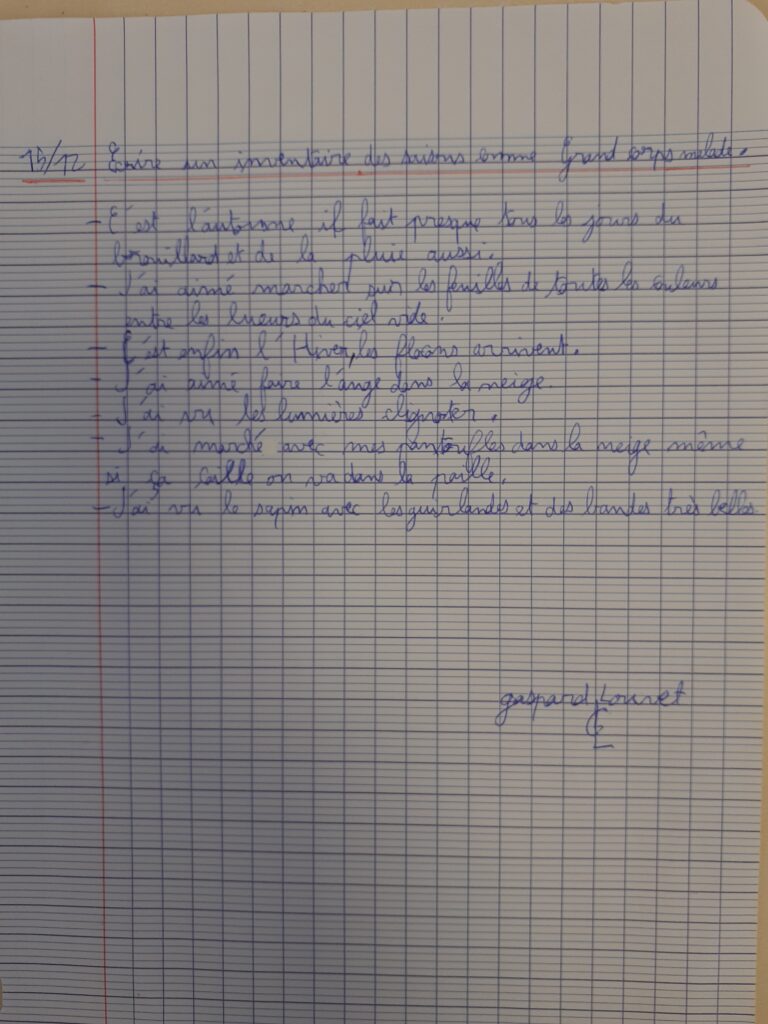 15/12 Ecrire un inventaire des saisons comme Grand corps malade.
- C'est l'automne il fait presque tous les jours du
brouillard et de la pluie aussi.
- J'ai aimé marcher sur les feuilles de toutes les couleurs
entre les lueurs du ciel vide.
- C'est enfin l'Hiver, les flocons arrivent.
- J'ai aimé faire l'ange dans la neige.
- J'ai vu les lumières clignoter.
- J'ai marché avec mes pantoufles dans la neige même
si ça caille on va dans la paille.
- J'ai vu le sapin avec les guirlandes et des bandes très belles
gaspard Louvet
GL